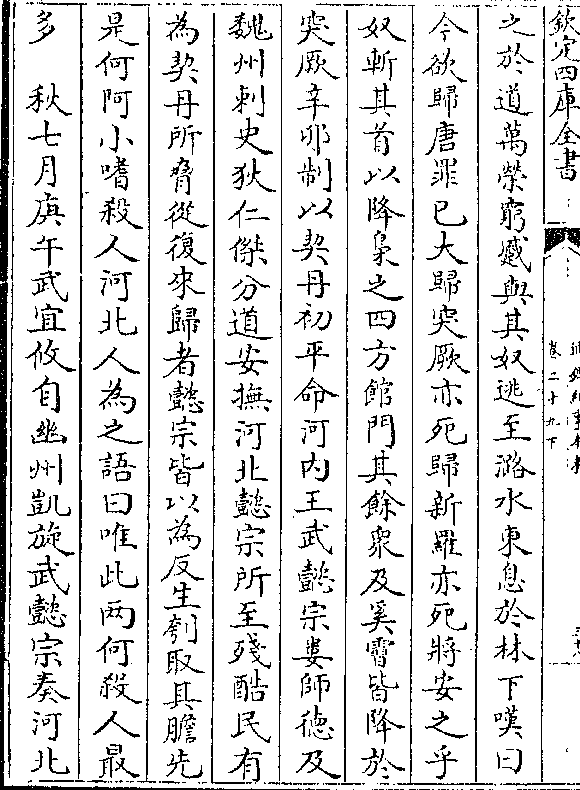 欽定四庫全書
卷二十九下
之於道萬榮窮蹙與其奴逃至潞水東息於林下嘆曰
今欲歸唐罪已大歸突厥亦死歸新羅亦死將安之乎
奴斬其首以降梟之四方館門其餘衆及奚霫皆降於
突厥辛卯制以契丹初平命河内王武懿宗婁師德及
魏州刺史狄仁傑分道安撫河北懿宗所至殘酷民有
為契丹所脅從復來歸者懿宗皆以為反生刳取其膽先
是何阿小嗜殺人河北人為之語曰唯此两何殺人最
多 秋七月庚午武宜攸自幽州凱旋武懿宗奏河北